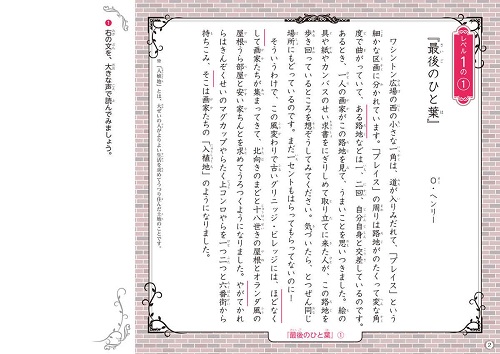 レベル1の①
『最後のひと葉』
O・ヘンリー
ワシントン広場の西の小さな一角は、道が入りみだれて、「プレイス」という
細かな区画に分かれています。「プレイス」の周りは路地がのたくって変な角
度で曲がっていて、ある路地などは一、二回、自分自身と交差しているのです。
あるとき、一人の画家がこの路地を見て、うまいことを思いつきました。絵の
具や紙やカンバスのせい求書をにぎりしめて取り立てに来た人が、この路地を
歩き回っているところを想ぞうしてみてください。気づいたら、とつぜん同じ
場所にもどっているのです。まだ一セントもはらってもらってないのに！
そういうわけで、この風変わりで古いグリニッジ・ビレッジには、ほどなく
して画家たちが集まってきて、北向きのまどと十八世きの屋根とオランダ風の
屋根うら部屋と安い家ちんとを求めてうろつくようになりました。やがてかれ
らはきんぞくせいのマグカップやらたく上コンロやらを一つ二つと六番街から
持ちこみ、そこは画家たちの「入植地」のようになりました。
※「入植地」とは、
❶右の文を、大きな声で読んでみましょう。
『最後のひと葉』①
7